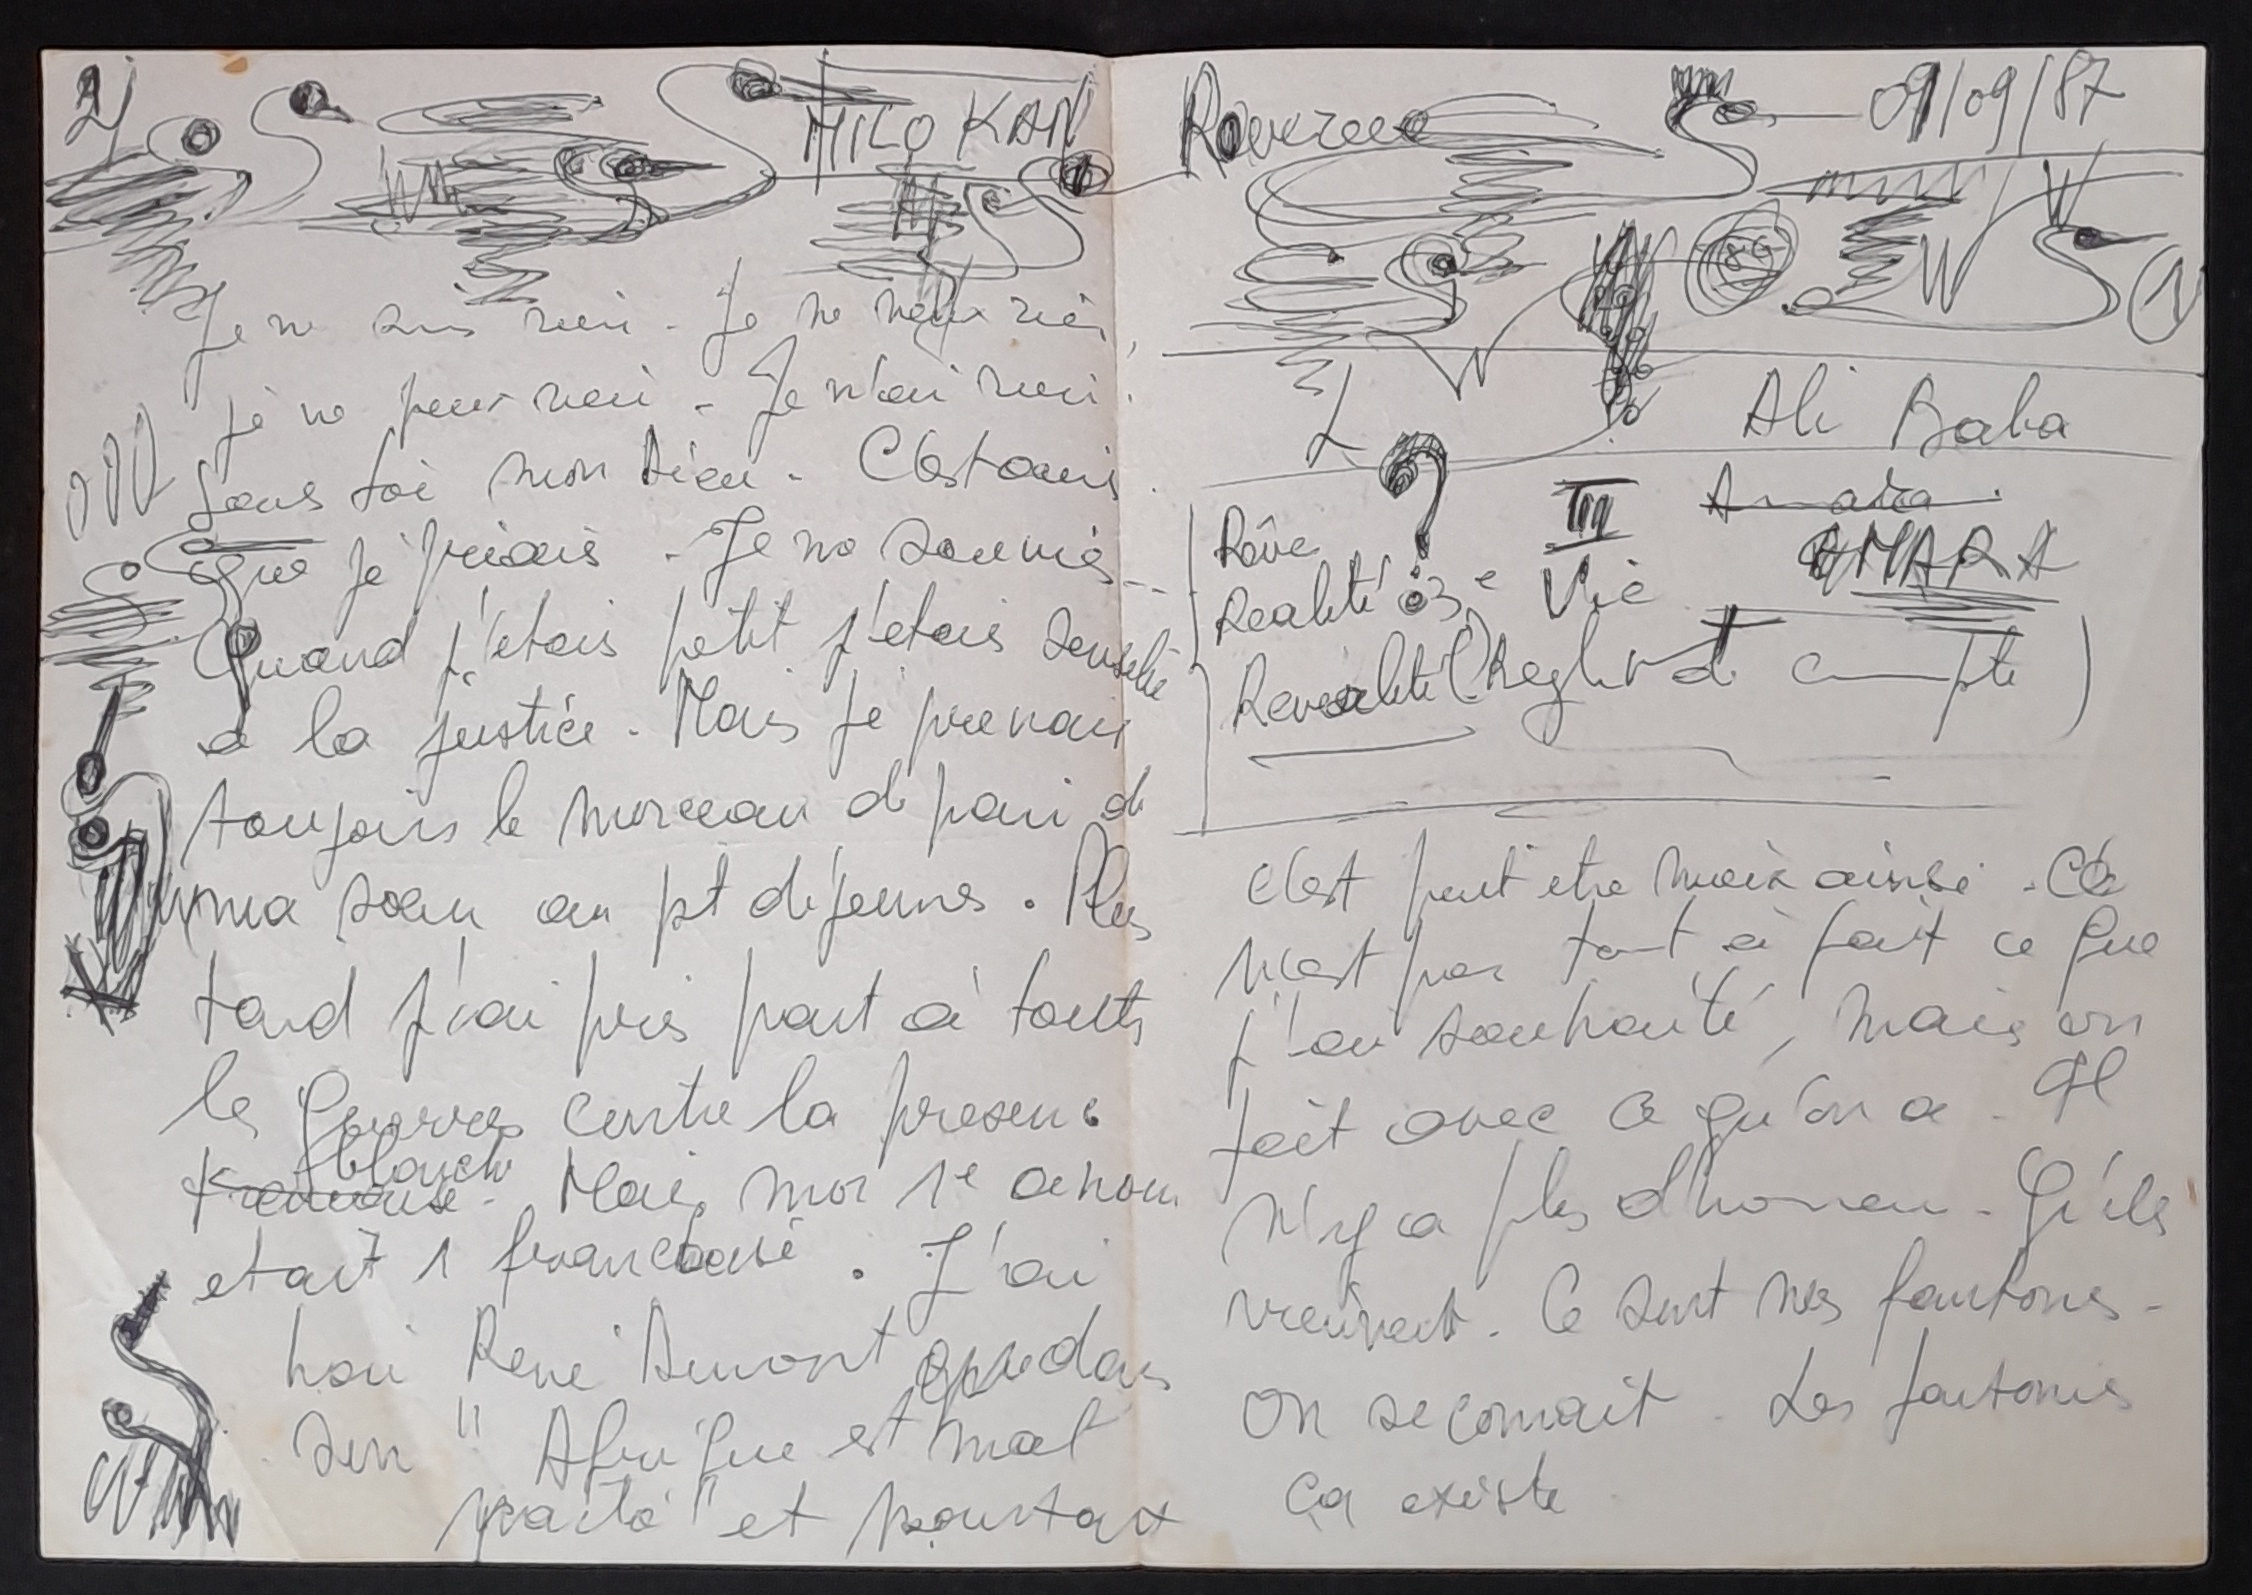 2)
MILO KAN
Je ne suis rien - Je ne veux rien
je ne peux rien - Je n'ai rien.
Sans toi mon Dieu - C'est ainsi
que je priais - Je ne
Quand j'etais petit j'etais sensible
à la justice - Mais je prenais
toujours le morceau de pain de
ma sœur au pt déjeuner. Plus
tard j'ai pris part à toutes
les guerres contre la presence
blanche
francaise - Mais mon 1e amour
etait 1 francaise. J'ai
haï René Dumont
son "Afrique est mal
et pourtant
09/09/87
89
1
Ali Baba
?
Rêve III
AMARA
Réalité 3e Vie
Revealité (Règlent de compte)
C'est peut etre mieux ainsi - Ce
n'est pas tout à fait ce que
j'ai souhaité, mais on
fait avec ce qu'on a - Il
n'y a plus d'honneur - Qu'ils
viennent - Ce sont nos fantomes -
On se connait - Les fantomes
ça existe